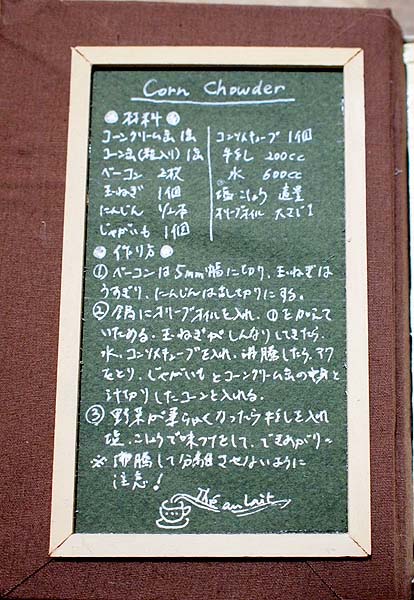 Corn Chowder
●材料●
コーンクリーム缶 1缶
コーン缶(粒入り) 1缶
ベーコン 2枚
玉ねぎ 1個
にんじん 1/2本
じゃがいも 1個
コンソメキューブ 1個
牛乳 200cc
水 600cc
塩こしょう 適量
オリーブオイル 大さじ1
●作り方●
① ベーコンは5mm幅に切り、玉ねぎは
うすぎり、にんじんは 切りにする。
② 鍋にオリーブオイルを入れ、①を加えて
いためる。玉ねぎがしんなりしてきたら、
水、コンソメキューブを入れ、沸騰したら、アク
をとり、じゃがいもとコーンクリーム缶の中身と
汁切りしたコーンを入れる。
③ 野菜が柔らかくなったら牛乳を入れ
塩、こしょうで味つけをして、できあがり~
※沸騰して分離させないように
注意!
Thé au Lait